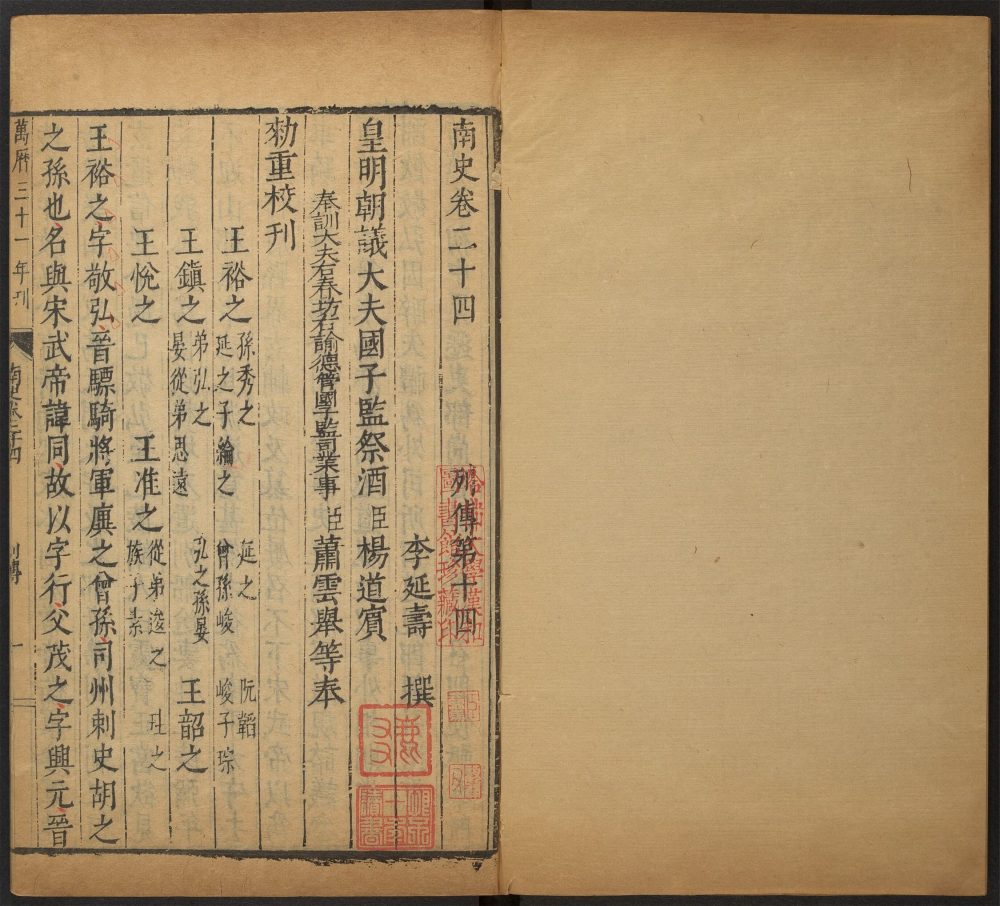 南史卷二十四
列傳第十四
李延壽 撰
皇明朝議大夫國子監祭酒臣楊道賓
奉訓大夫右春坊右諭德管國子監司業事臣蕭雲舉等奉
勑重校刊
王裕之 孫秀之 延之 阮韜
延之子綸之 曾孫峻 峻子琮
王鎮之 弟弘之 弘之孫晏 王韶之
晏從弟思遠
王悅之 王准之 從弟逡之 珪之
族子素
王裕之字敬弘晉驃騎將軍廙之曾孫司州刺史胡之
之孫也名與宋武帝諱同故以字行父茂之字興元晉
萬曆三十一年刊
南史卷二十四
列傳
一
哈佛大學漢和
圖書館珍藏印